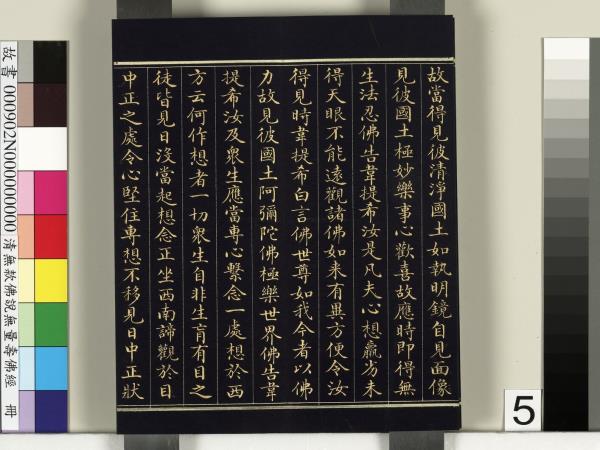 故當得見彼清淨國土如執明鏡自見面像
見彼國土極妙樂事心歡喜故應時即得無
生法忍佛告韋提希汝是凡夫心想羸劣未
得天眼不能遠觀諸佛如来有異方便令汝
得見時韋提希白言佛世尊如我今者以佛
力故見彼國土阿彌陀佛極樂世界佛告韋
提希汝及衆生應當專心繫念一處想於西
方云何作想者一切衆生自非生盲有目之
徒皆見日沒當起想念正坐西南諦觀於日
中正之處令心堅住專想不移見日中正狀
故書 000902N000000000 清無款佛說無量壽佛經 冊
5